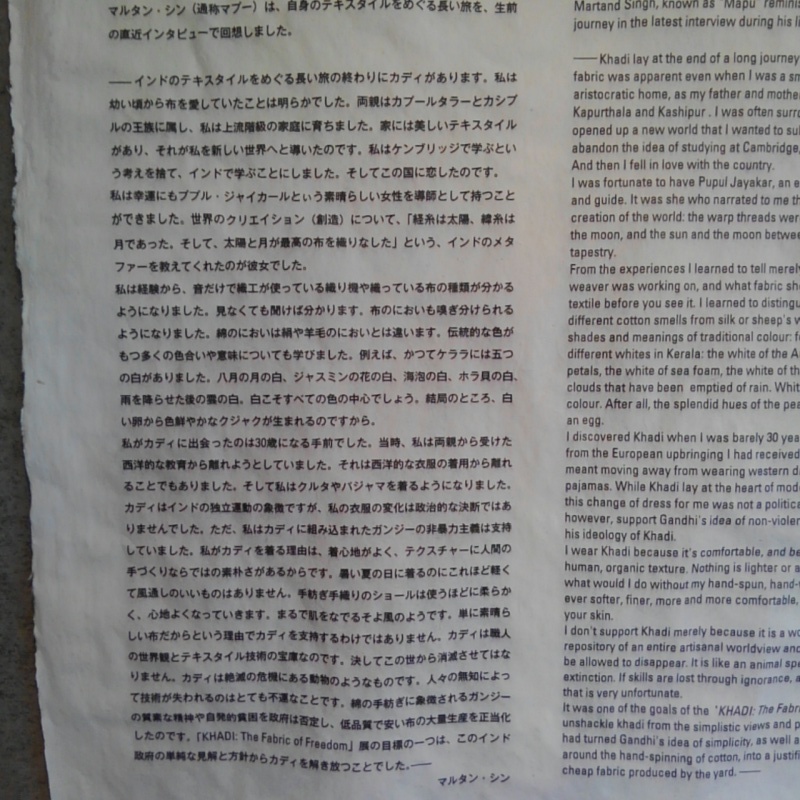 マルタン・シン（通称マプー）は、自身のテキスタイルをめぐる長い旅を、生前
の直近インタビューで回想しました。
――インドのテキスタイルをめぐる長い旅の終わりにカディがあります。私は
幼い頃から布を愛していたことは明らかでした。両親はカプールタラーとカシプ
ルの王族に属し、私は上流階級の家庭に育ちました。家には美しいテキスタイル
があり、それが私を新しい世界へと導いたのです。私はケンブリッジで学ぶとい
う考えを捨て、インドで学ぶことにしました。そしてこの国に恋したのです。
私は幸運にもププル・ジャイカールという素晴らしい女性を導師として持つこと
ができました。世界のクリエイション（創造）について、「経糸は太陽、緯糸は
月であった。そして、太陽と月が最高の布を織りなした」という、インドのメタ
ファーを教えてくれたのが彼女でした。
私は経験から、音だけで織工が使っている織り機や織っている布の種類が分かる
ようになりました。見なくても聞けば分かります。布のにおいも嗅ぎ分けられる
ようになりました。綿のにおいは絹や羊毛のにおいとは違います。伝統的な色が
もつ多くの色合いや意味についても学びました。例えば、かつてケララには五つ
の白がありました。八月の月の白、ジャスミンの花の白、海泡の白、ホラ貝の白、
雨を降らせた後の雲の白。白こそすべての色の中心でしょう。結局のところ、白
い卵から色鮮やかなクジャクが生まれるのですから。
私がカディに出会ったのは30歳になる手前でした。当時、私は両親から受けた
西洋的な教育から離れようとしていました。それは西洋的な衣服の着用から離れ
ることでもありました。そして私はクルタやパジャマを着るようになりました。
カディはインドの独立運動の象徴ですが、私の衣服の変化は政治的な決断ではあ
りませんでした。ただ、私はカディに組み込まれたガンジーの非暴力主義は支持
していました。私がカディを着る理由は、着心地がよく、テクスチャーに人間の
手づくりならではの素朴さがあるからです。暑い夏の日に着るのにこれほど軽く
て風通しのいいものはありません。手紡ぎ手織りのショールは使うほどに柔らか
く、心地よくなっていきます。まるで肌をなでるそよ風のようです。単に素晴ら
しい布だからという理由でカディを支持するわけではありません。カディは職人
の世界観とテキスタイル技術の宝庫なのです。決してこの世から消滅させてはな
りません。カディは絶滅の危機にある動物のようなものです。人々の無知によっ
て技術が失われるのはとても不運なことです。綿の手紡ぎに象徴されるガンジー
の質素な精神や自発的貧困を政府は否定し、低品質で安い布の大量生産を正当化
したのです。「KHADI: The Fabric of Freedom」展の目標の一つは、このインド
政府の単純な見解と方針からカディを解き放つことでした。――
マルタン・シン
Martand Singh, known as "Mapu" reminis
journey in the latest interview during his li
――Khadi lay at the end of a long journey
fabric was apparent even when I was a sm
aristocratic home, as my father and mothe
Kapurthala and Kashipur . I was often surro
opened up a new world that I wanted to su
abandon the idea of studying at Cambridge,
And then I fell in love with the country.
I was fortunate to have Pupul Jayakar, an e
and guide. It was she who narrated to me th
creation of the world: the warp threads were
the moon, and the sun and the moon betwee
tapestry.
From the experiences I learned to tell merel
weaver was working on, and what fabric sh
textile before you see it. I learned to distingu
different cotton smells from silk or sheep's w
shades and meanings of traditional colour: f
different whites in Kerala: the white of the A
petals, the white of sea foam, the white of th
clouds that have been emptied of rain. Whit
colour. After all, the splendid hues of the pea
an egg.
I discovered Khadi when I was barely 30 year
from the European upbringing I had received
meant moving away from wearing western d
pajamas. While Khadi lay at the heart of mod
this change of dress for me was not a politica
however, support Gandhi's idea of non-violen
his ideology of Khadi.
I wear Khadi because it's comfortable, and be
human, organic texture. Nothing is lighter or a
what would I do without my hand-spun, hand-
ever softer, finer, more and more comfortable,
your skin.
I don't support Khadi merely because it is a wo
repository of an entire artisanal worldview and
be allowed to disappear. It is like an animal spe
extinction. If skills are lost through ignorance, a
that is very unfortunate.
It was one of the goals of the "KHADI: The Fabri
unshackle khadi from the simplistic views and p
had turned Gandhi's idea of simplicity, as well a
around the hand-spinning of cotton, into a justif
cheap fabric produced by the yard. ――